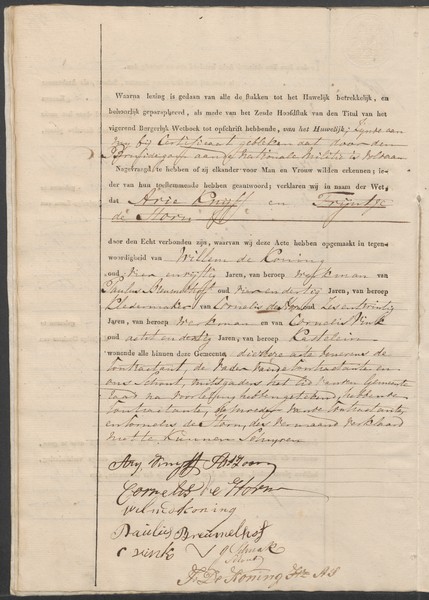 Waarna lezing is gedaan van alle de stukken tot het Huwelijk betrekkelijk, en
behoorlijk geparapheerd, als mede van het Zesde Hoofdstuk van den Titul van het
vigerend Burgerlijk Wetboek tot opschrift hebbende, van het Huwelijk; zijnde aan
ons bij Certificaat gebleken dat door den
Bruidegom aan de Nationale Militie is voldaan
Nagevraagd te hebben of zij elkander voor Man en Vrouw wilden erkennen; ie-
der van hun toestemmende hebben geantwoord; verklaren wij in naam der Wet,
dat Arie en Trijntje
de Horn
door den Echt verbonden zijn, waarvan wij deze Acte hebben opgemaakt in tegen-
woordigheid van Willem de Koning
oud vier en vijftig Jaren, van beroep werkman van
Paulus oud vier en dertig Jaren, van beroep
Kledermaker van Cornelis de Horn oud Zes en twintig
Jaren, van beroep werkman en van Cornelis Vink
oud acht en dertig Jaren, van beroep Kastelein
wonende alle binnen deze Gemeente die deze acte benevens de
Contractant, de Vader van de Contractante en
ons Schout, mitsgaders het Lid van den Gemeente
raad na voorlezing hebben getekend, hebbende
Contractante, de moeder van de Contractante,
en Cornelis de Horn, des vermaand verklaard
niet te kunnen Schrijven
Ary
Cornelis de Horn
willem de koning
Paulus Breumelhof
C vink
Schout
De Koning